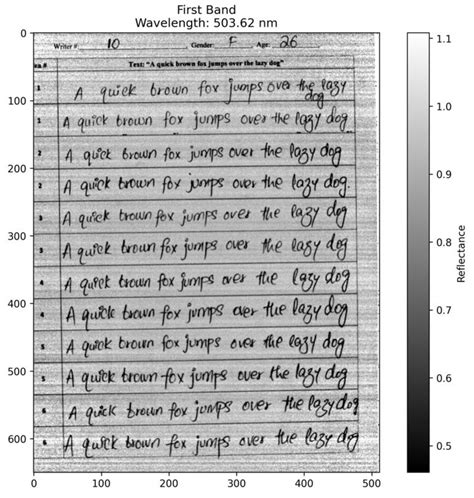 First Band
Wavelength: 503.62 nm
Writer # 10 Gender: F Age: 26
en # Text: "A quick brown fox jumps over the lazy dog"
1 A quick brown fox jumps over the lazy
dog
1 A quick brown fox jumps over the lazy dog.
2 A quick brown fox jumps over the lazy dog
2 A quick brown fox jumps over the lazy dog.
3 A quick brown fox jumps over the lazy dog
3 A quick brown fox jumps over the lazy dog
4 A quick brown fox jumps over the lazy dog
4 A quick brown fox jumps over the lazy dog
5 A quick brown fox jumps over the lazy dog
5 A quick brown fox jumps over the lazy dog
6 A quick brown fox jumps over the lazy dog
6 A quick brown fox jumps over the lazy dog
0
100
200
300
400
500
600
0 100 200 300 400 500
1.1
1.0
0.9
0.8
0.7
0.6
0.5
Reflectance